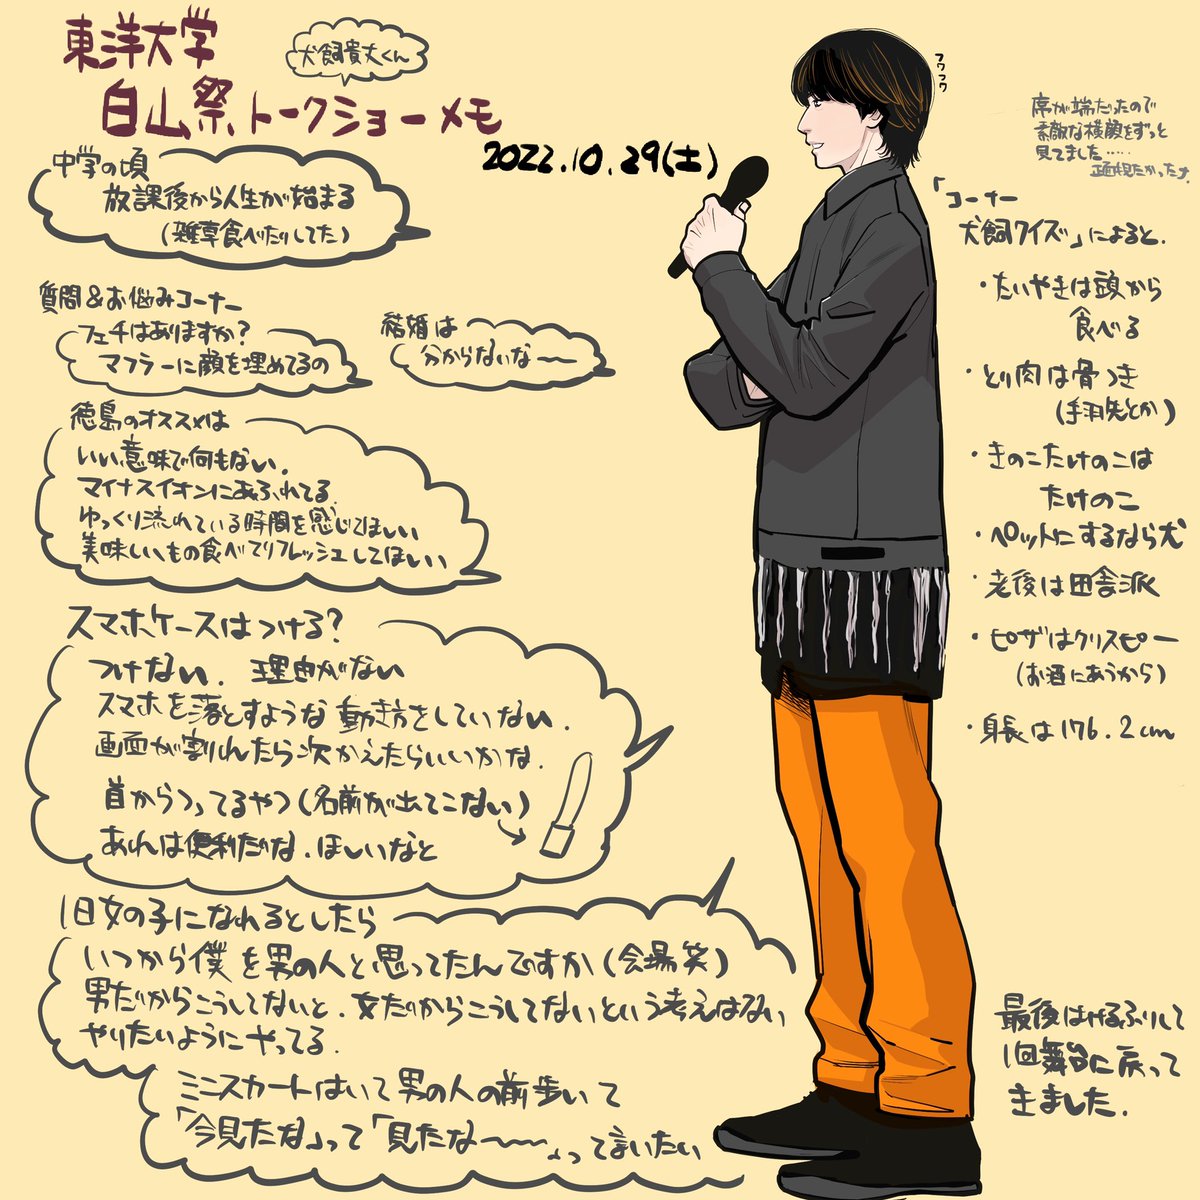 東洋大学
白山祭トークショーメモ
犬飼貴丈くん
2022.10.29(土)
中学の頃
放課後から人生が始まる
(雑草食べたりしてた)
質問&お悩みコーナー
フェチはありますか?
マフラーに顔を埋めてるの
結婚は
分からないな〜
徳島のオススメは
いい意味で何もない.
マイナスイオンにあふれてる.
ゆっくり流れている時間を感じてほしい
美味しいもの食べてリフレッシュしてほしい
スマホケースはつける?
つけない. 理由がない
スマホを落とすような動き方をしていない.
画面が割れたら次かえたらいいかな.
首からつってるやつ(名前が出てこない)
あれは便利だな.ほしいなと
1日女の子になれるとしたら
いつから僕を男の人と思ってたんですか(会場笑)
男だからこうしてないと.女だからこうしてないという考えはない
やりたいようにやってる.
ミニスカートはいて男の人の前歩いて
「今見たな」って「見たな〜〜」って言いたい
フワフワ
席が端だったので
素敵な横顔をずっと
見てました……
正面見たかった
「コーナー
犬飼クイズ」によると.
・たいやきは頭から
食べる
・とり肉は骨つき
(手羽先とか)
・きのこたけのこは
たけのこ
・ペットにするなら犬
・老後は田舎派
・ピザはクリスピー
(お酒にあうから)
・身長は176.2cm
最後はけるふりして
1回舞台に戻って
きました.